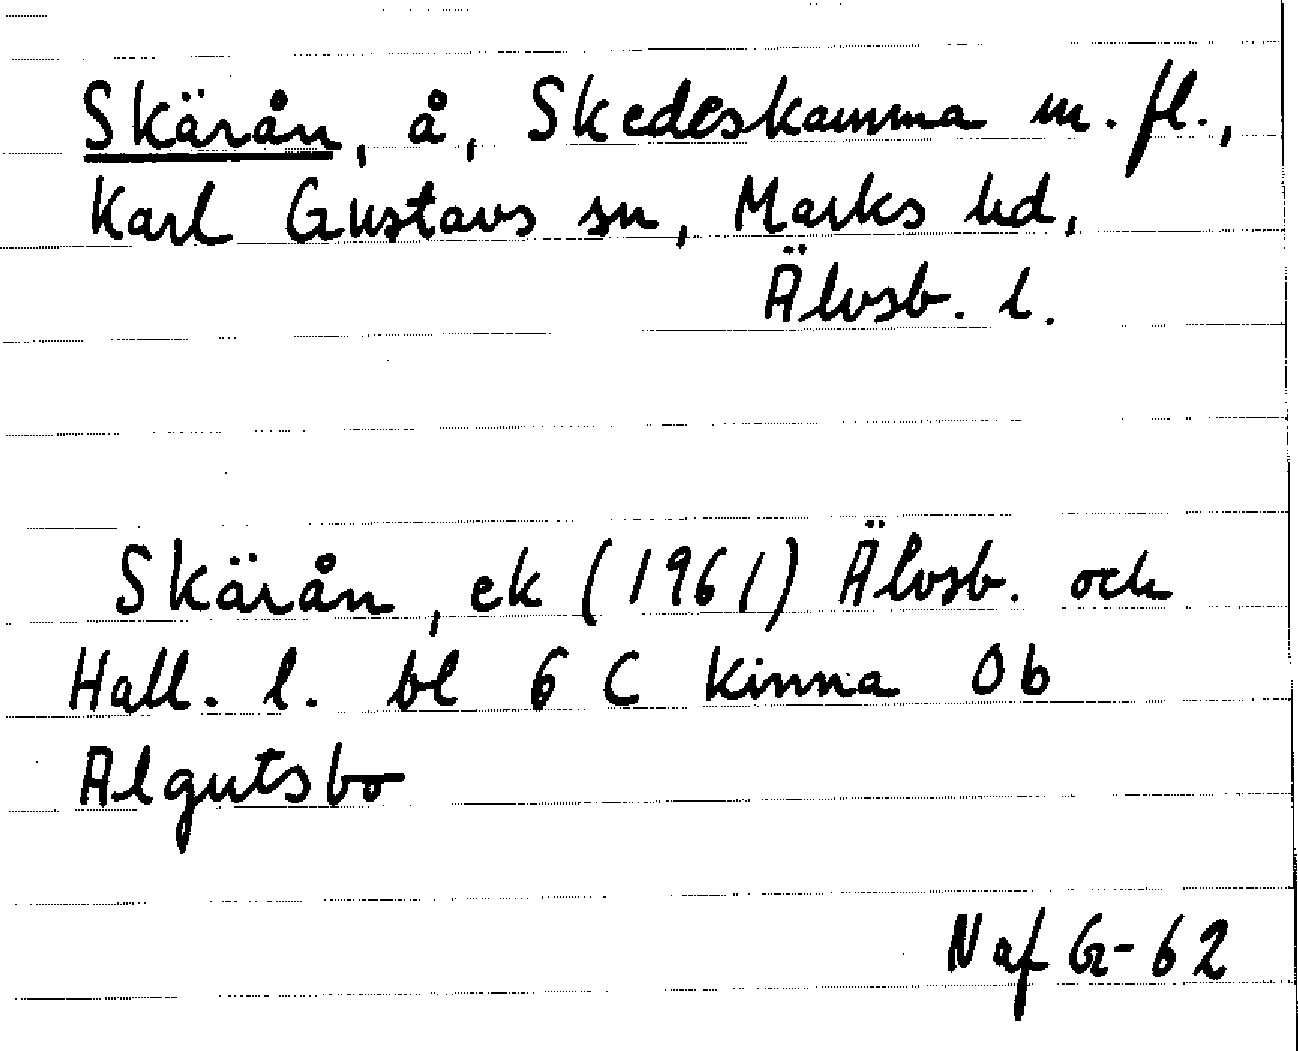 Skärån, å, Skedeskamma m. fl.,
Karl Gustavs sn, Marks hd,
Älvsb. l.
Skärån, ek (1961) Älvsb. och
Hall. l. bl 6 C Kinna Ob
Algutsbo
Naf G-62